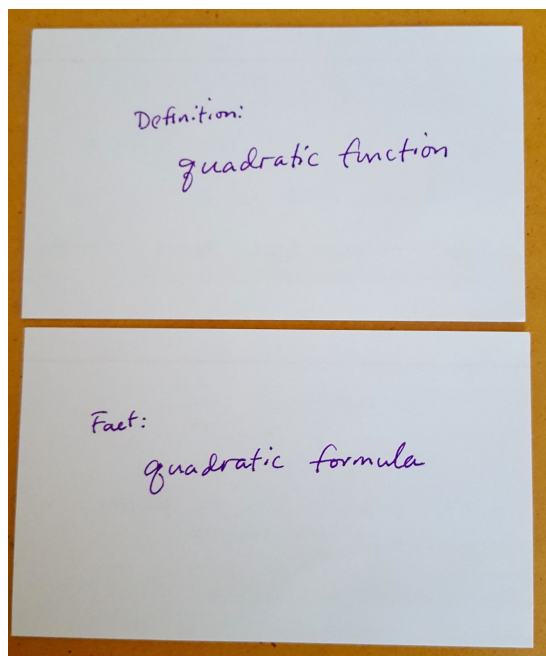 Definition:
quadratic function
Fact:
quadratic formula